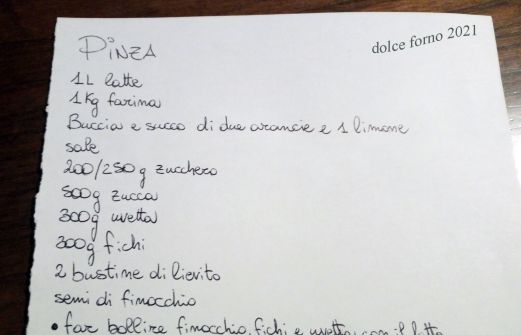 PiNZA
dolce forno 2021
1L latte
1 Kg farina
Buccia e succo di due arancie e 1 limone
sale
200/250 g zucchero
500g zucca
300g uvetta
300g fichi
2 bustine di lievito
semi di finocchio
• far bollire finocchio, fichi e uvetta con il latte